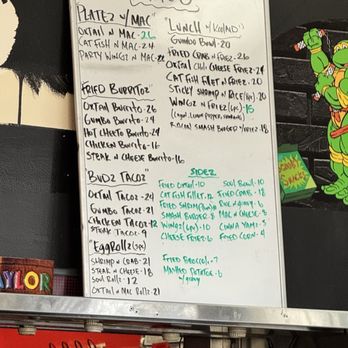 Platez w/ Mac
Oxtail n Mac - 26
Catfish n Mac - 24
Party Wingz n Mac - 22
Fried Burritoz
Oxtail Burrito - 26
Gumbo Burrito - 24
Hot Cheeto Burrito - 24
Chicken Burrito - 16
Steak n Cheese Burrito - 16
Budz Tacoz
Oxtail Tacoz - 24
Gumbo Tacoz - 21
Chicken Tacoz 12
Steak Tacoz 9
"EggRollz (3pc)
Shrimp n Crab - 21
Steak n Cheese - 18
Soul Rollz - 12
Oxtail n Mac Rollz - 21
Lunch w/ Koolaid
Gumbo Bowl - 20
Fried Crab n Fryz - 26
Oxtail Chili Cheese Fryez - 24
Catfish Filet n Fryez - 20
Sticky Shrimp n Rice (6pc) - 20
Wingz n Fryez (4pc) - 15
(Cajun, Lemon Pepper,
Smash Burger w/ Fryez - 18
Sidez
Fried Oxtail - 10
Catfish Filet - 12
Fried Shrimp
Smash Burger 8
Wingz (4pc) - 10
Cheese Fryez - 6
Soul Bowl - 10
Fried Crab - 18
Rice n Gravy - 6
Mac n Cheese - 8
Cinna Yamz - 7
Fried Corn - 4
Fried Broccoli - 7
Mashed Potatoe - 6
w/ gravy
AYLOR